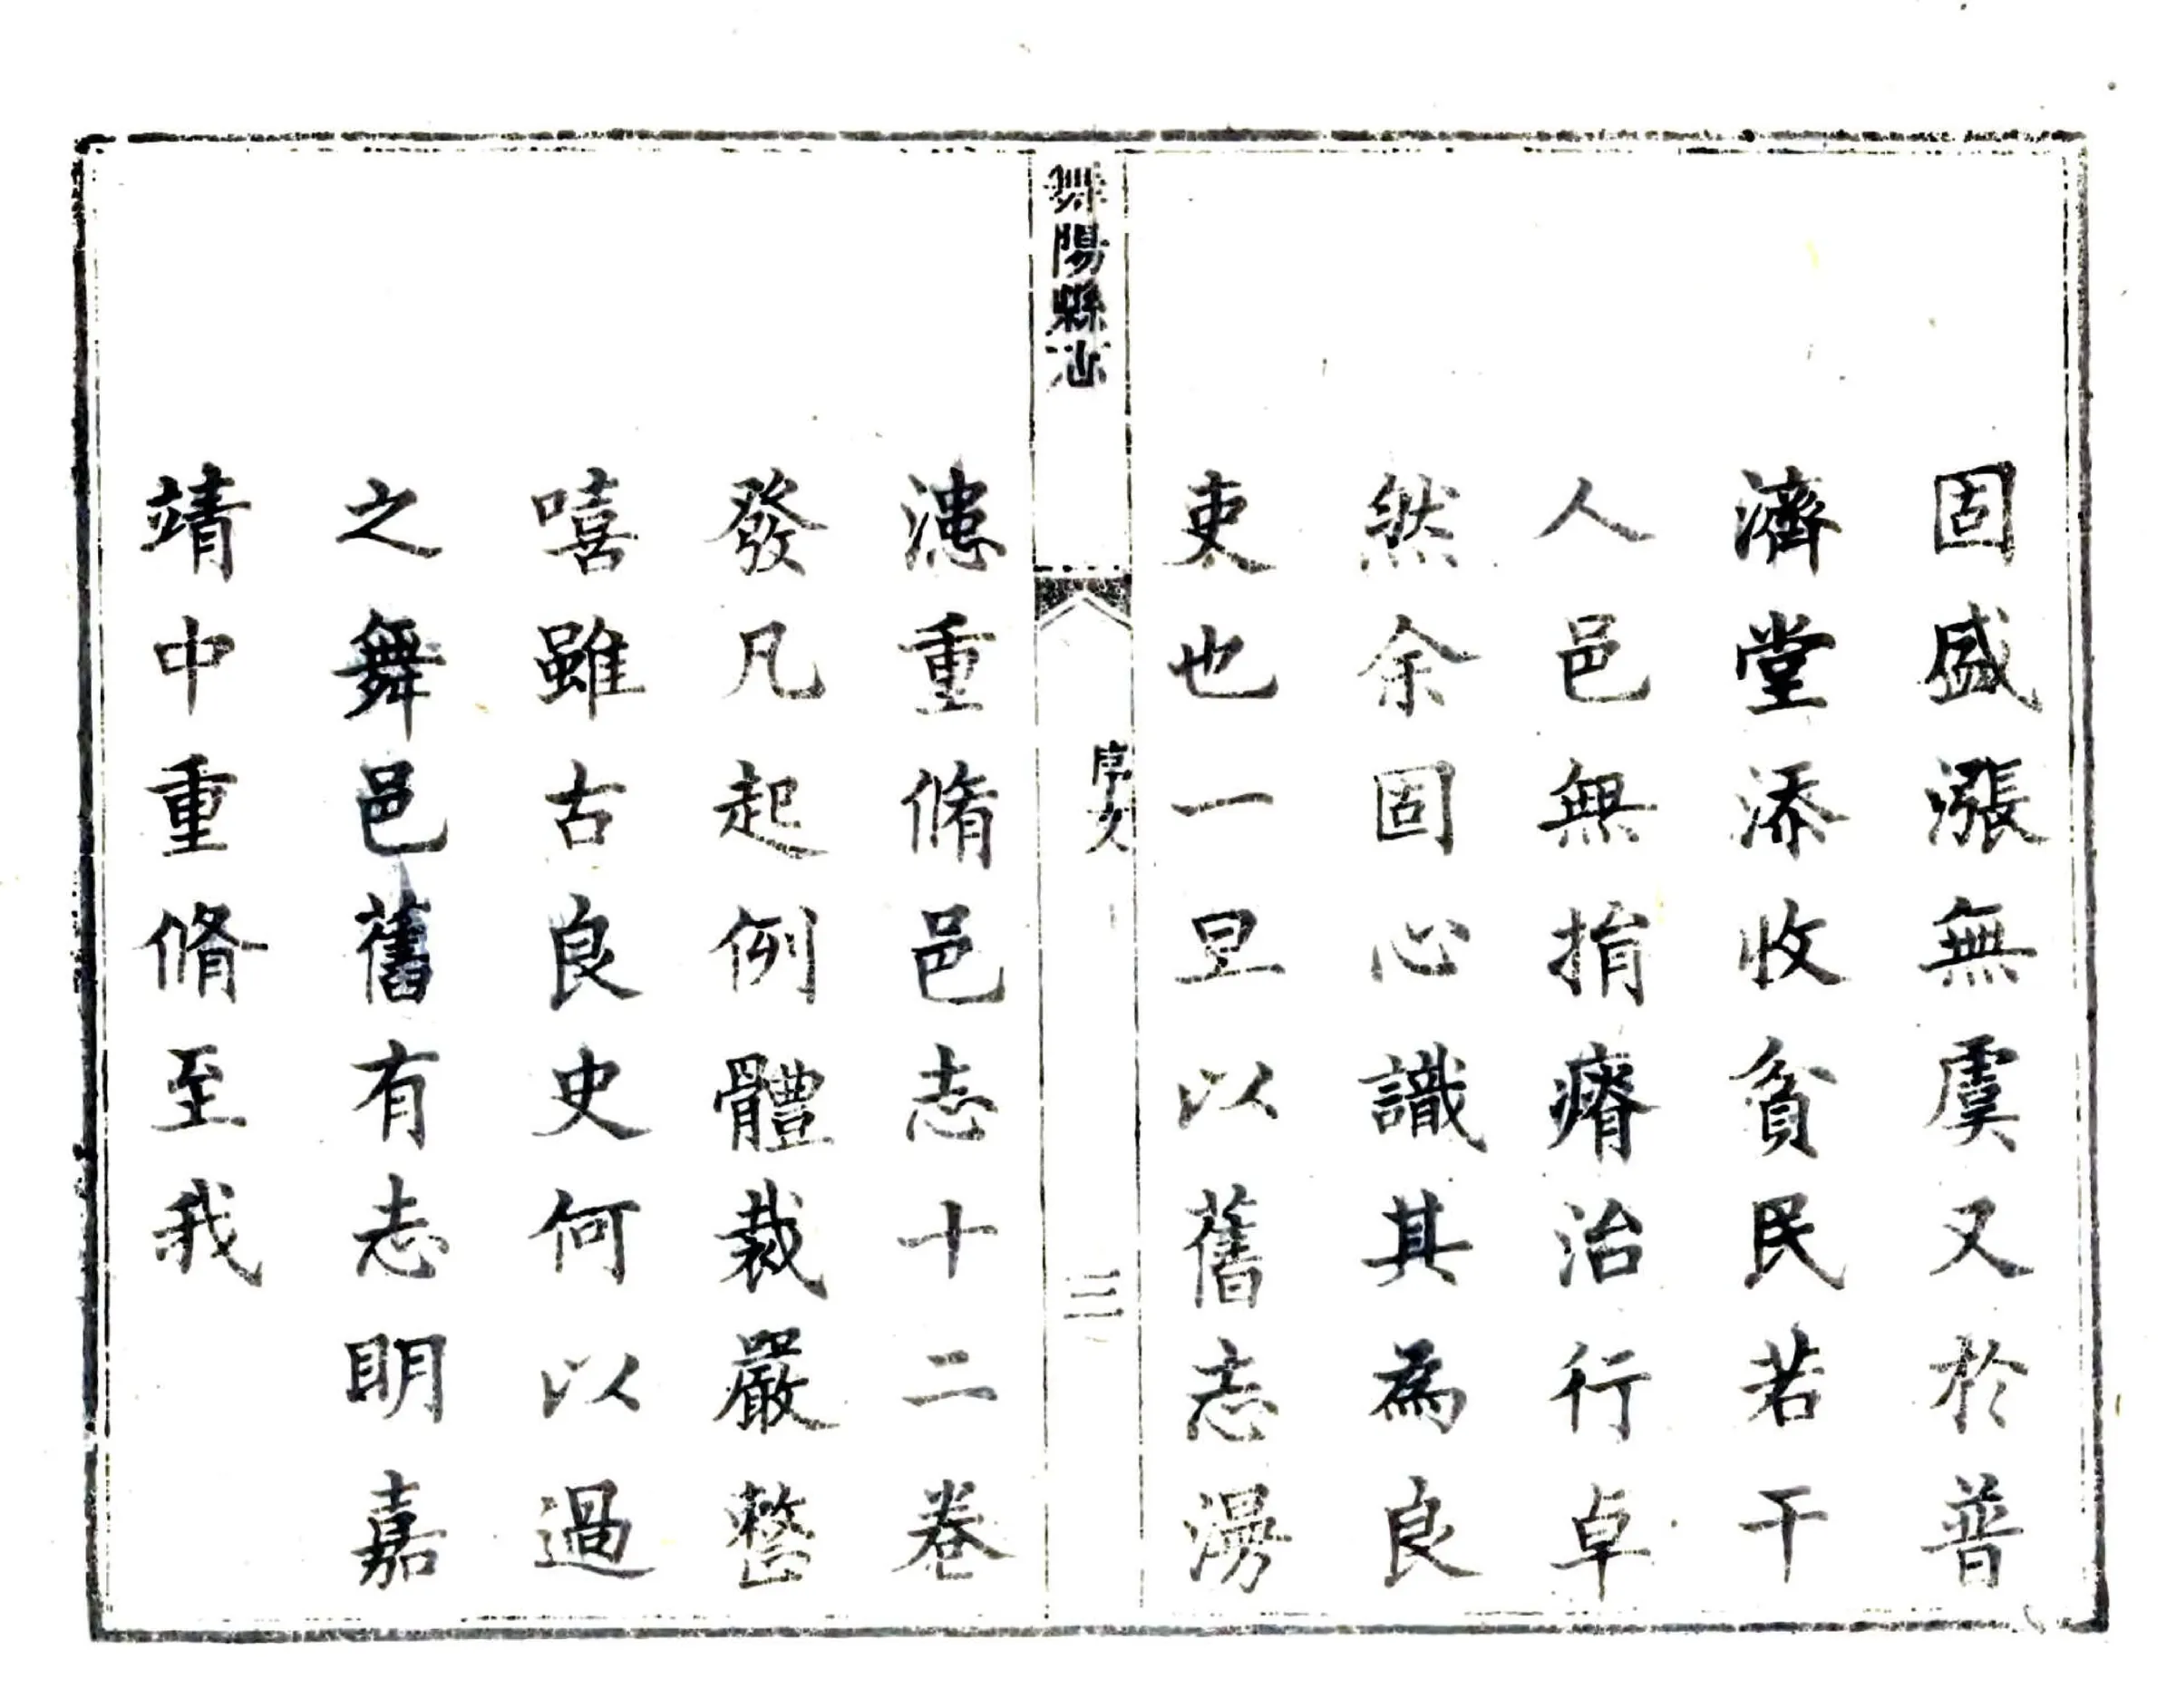 固盛漲無虞又於普
濟堂添收貧民若干
人邑無捐瘠治行卓
然余固心識其為良
吏也一旦以舊志漫
舞陽縣志
序文
三
漶重脩邑志十二卷
發凡起例體裁嚴整
嘻雖古良史何以過
之舞邑舊有志明嘉
靖中重脩至我